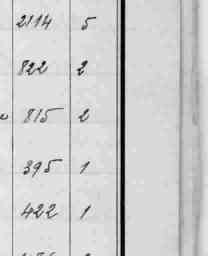 2114 5
822 2
815 2
395 1
422 1